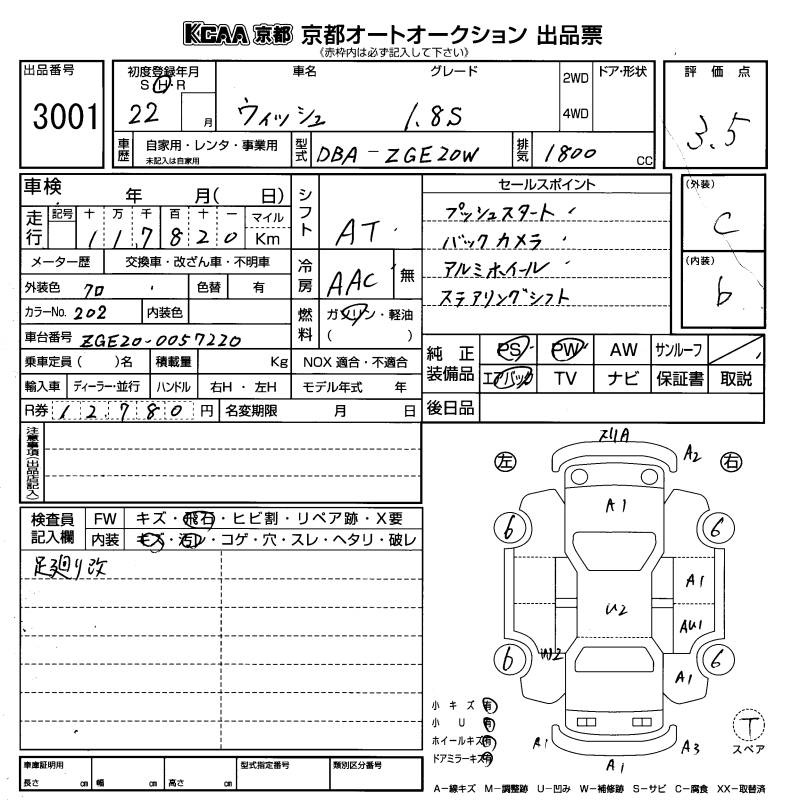 KCAA 京都 京都オートオークション 出品票
《赤枠内は必ず記入して下さい》
出品番号 3001
初度登録年月 S・H・R 22 月
車名 グレード
ウィッシュ 1.8S
2WD 4WD
ドア・形状
評価点 3.5
車歴 自家用・レンタ・事業用 未記入は自家用
型式 DBA-ZGE20W
排気 1800 CC
車検 年 月( 日)
走行 記号 十 万 千 百 十 一 マイル Km
117820
メーター歴 交換車・改ざん車・不明車
外装色 クロ 色替 有
カラーNo. 202 内装色
車台番号 ZGE20-0057220
乗車定員( )名 積載量 Kg
輸入車 ディーラー・並行 ハンドル 右H・左H
R券 12780 円 名変期限 月 日
シフト AT
冷房 AAC 無
燃料 ガソリン・軽油 ( )
NOX 適合・不適合
モデル年式 年
セールスポイント
プッシュスタート
バックカメラ
アルミホイール
ステアリングシフト
(外装) C
(内装) b
純正装備品 PS PW AW サンルーフ
エアバッグ TV ナビ 保証書 取説
後日品
注意事項(出品店記入)
検査員記入欄
FW キズ・飛石・ヒビ割・リペア跡・X要
内装 キズ・汚レ・コゲ・穴・スレ・ヘタリ・破レ
足廻り改
左 右
スリA A2
A1
6 6
A1
U2 AU1
6 W2 6
A1
A1 A1 A3
小キズ 有
小U 有
ホイールキズ 有
ドアミラーキズ 有
T スペア
車庫証明用 長さ cm 幅 cm 高さ cm
型式指定番号
類別区分番号
A-線キズ M-調整跡 U-凹み W-補修跡 S-サビ C-腐食 XX-取替済